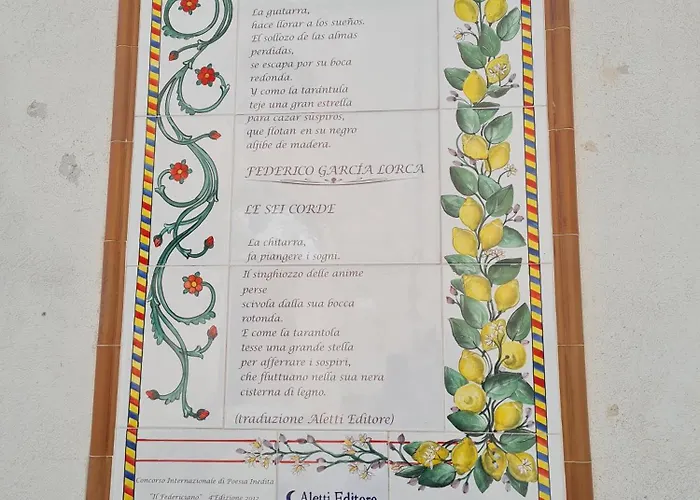 La guitarra,
hace llorar a los sueños.
El sollozo de las almas
perdidas,
se escapa por su boca
redonda.
Y como la tarántula
teje una gran estrella
para cazar suspiros,
que flotan en su negro
aljibe de madera.
FEDERICO GARCÍA LORCA
LE SEI CORDE
La chitarra,
fa piangere i sogni.
Il singhiozzo delle anime
perse
scivola dalla sua bocca
rotonda.
E come la tarantola
tesse una grande stella
per afferrare i sospiri,
che fluttuano nella sua nera
cisterna di legno.
(traduzione Aletti Editore)
Concorso Internazionale di Poesia Inedita
"Il Federiciano" 4ª Edizione 2012
Aletti Editore